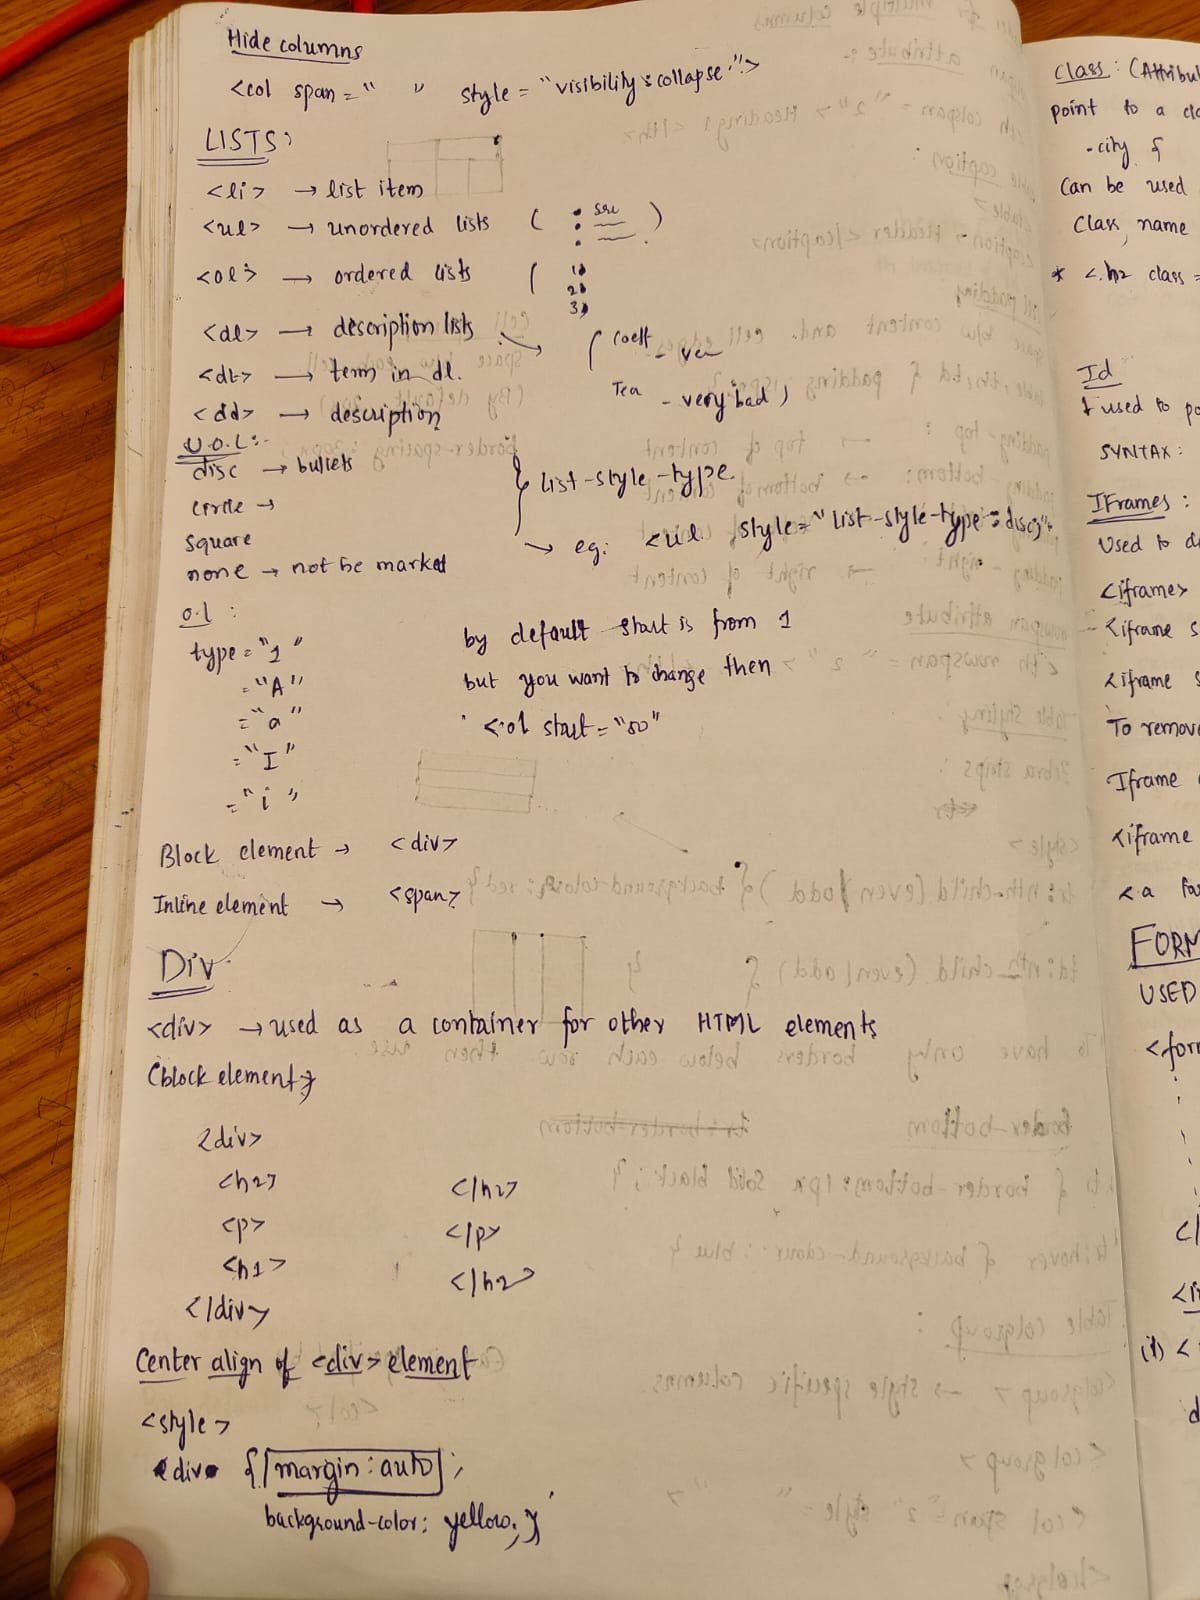 Hide columns
<col span = " " style = "visibility : collapse">
LISTS :
<li> → list item
<ul> → unordered lists (
<ol> → ordered lists ( 1) 2) 3)
<dl> → description lists
<dt> → term in dl.
<dd> → description
( coeff -
Tea - very bad )
U.O.L :-
disc → bullets
circle →
square
none → not be marked
} list-style-type
→ eg: <ul style="list-style-type : disc;">
o.l :
type = "1"
= "A"
= "a"
= "I"
= "i"
by default start is from 1
but you want to change then
<ol start = "50"
Block element → <div>
Inline element → <span>
Div
<div> → used as a container for other HTML elements
(block element)
<div>
<h2> </h2>
<p> </p>
<h1> </h2>
</div>
Center align of <div> element
<style>
div { margin : auto ;
background-color: yellow; }
Class : (Attribu
point to a cla
-city {
Can be used
Class name
* <h2 class =
Id
used to po
SYNTAX :
IFrames :
Used to di
<iframe>
<iframe s
<iframe s
To remove
Iframe
<iframe
<a
FORM
USED
<form
</
(i) <